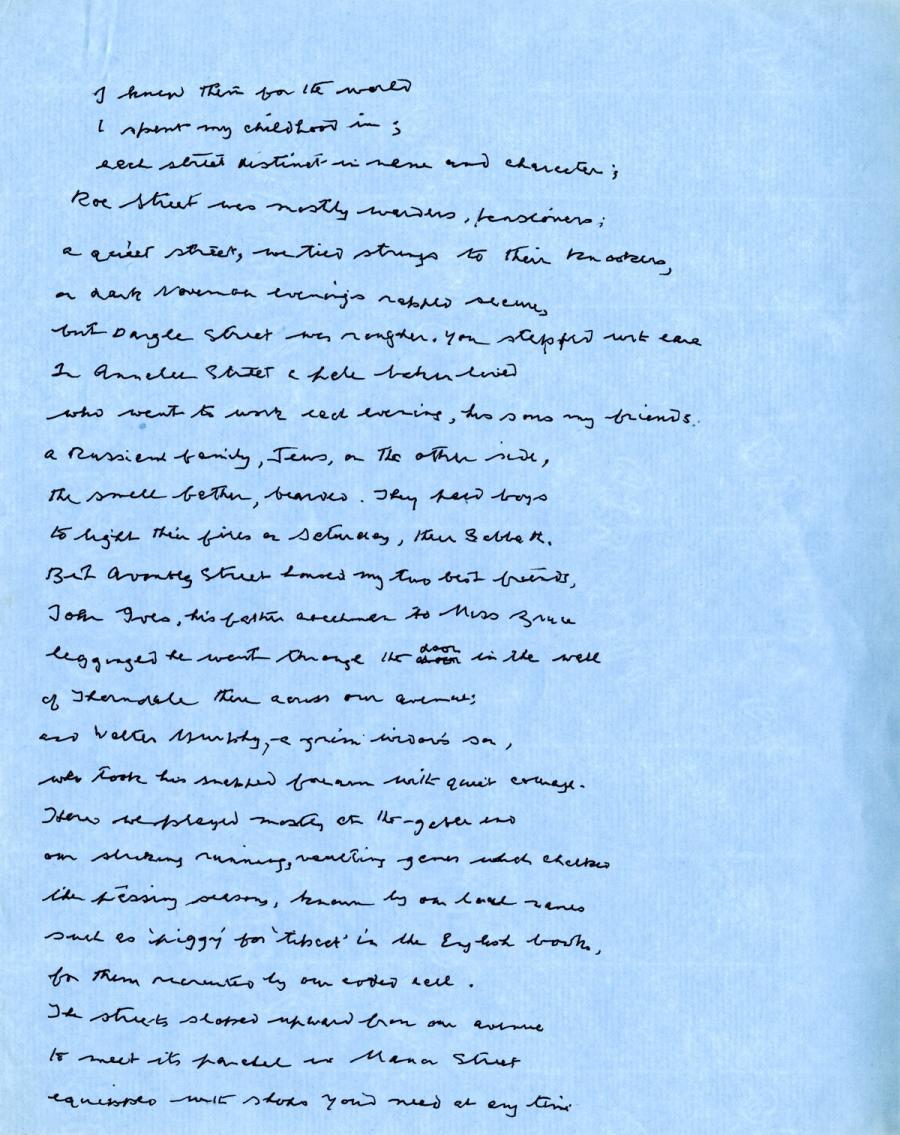 I knew them for the world
I spent my childhood in;
each street distinct in name and character;
Roe Street was mostly warders, pensioners;
a quiet street, we tied strings to their knockers,
on dark November evenings rapped secure,
but Dargle Street was rougher. You stepped with care
In Annalee Street a pale baker lived
who went to work each evening, his sons my friends.
a Russian family, Jews, on the other side,
the small father, bearded. They paid boys
to light their fires on Saturday, their Sabbath.
But Avonbeg Street housed my two best friends,
John Ives, his father coachman to Miss Bruce
legginged he went through the door in the wall
of Thorndale there across our avenue;
and Walter Murphy, a grim widow's son,
who took his snapped forearm with quiet courage.
Here we played mostly at the gable end
our striking, running, vaulting games which
like passing seasons, known by our local names
such as 'piggy' for 'tipcat' in the English books,
for them recruited by our coded call.
The streets sloped upward from our avenue
to meet its parallel in Manor Street
equipped with shops you'd need at any time